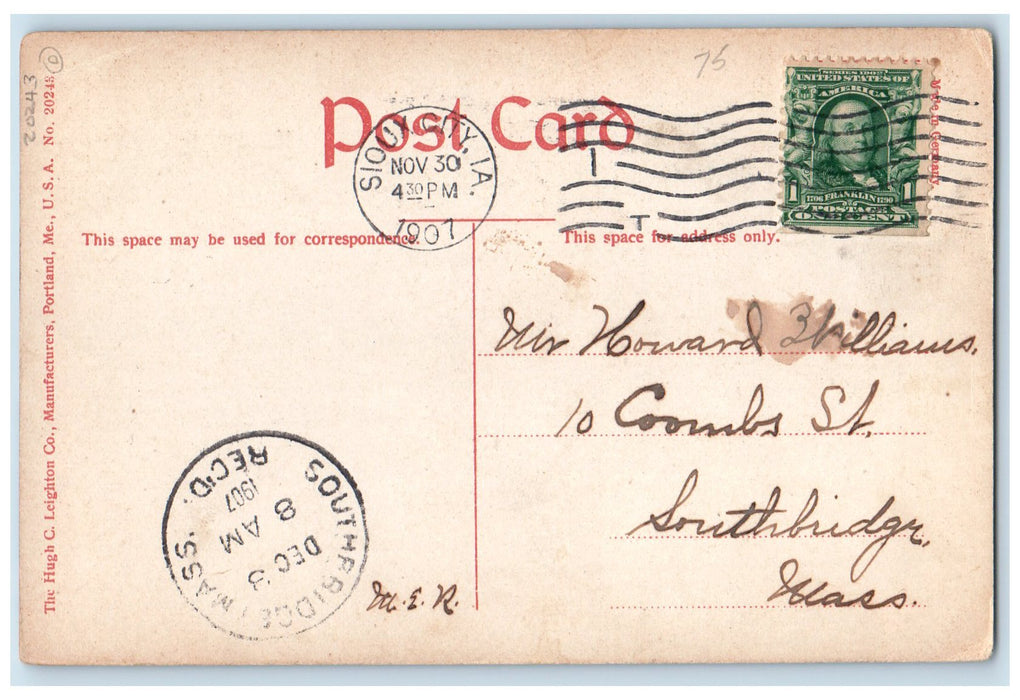 75
20243
The Hugh C. Leighton Co., Manufacturers, Portland, Me., U. S. A. No. 20243
Post Card
SIOUX CITY, IA.
NOV 30
4 30 PM
1907
1
T
SERIES 1902
UNITED STATES OF
AMERICA
1 1
1706 FRANKLIN 1790
POSTAGE
ONE CENT
Made in Germany.
This space may be used for correspondence.
This space for address only.
Mr Howard Williams.
10 Coombs St.
Southbridge,
Mass.
SOUTHBRIDGE, MASS.
DEC 3
8 AM
1907
REC'D.
M. E. R.